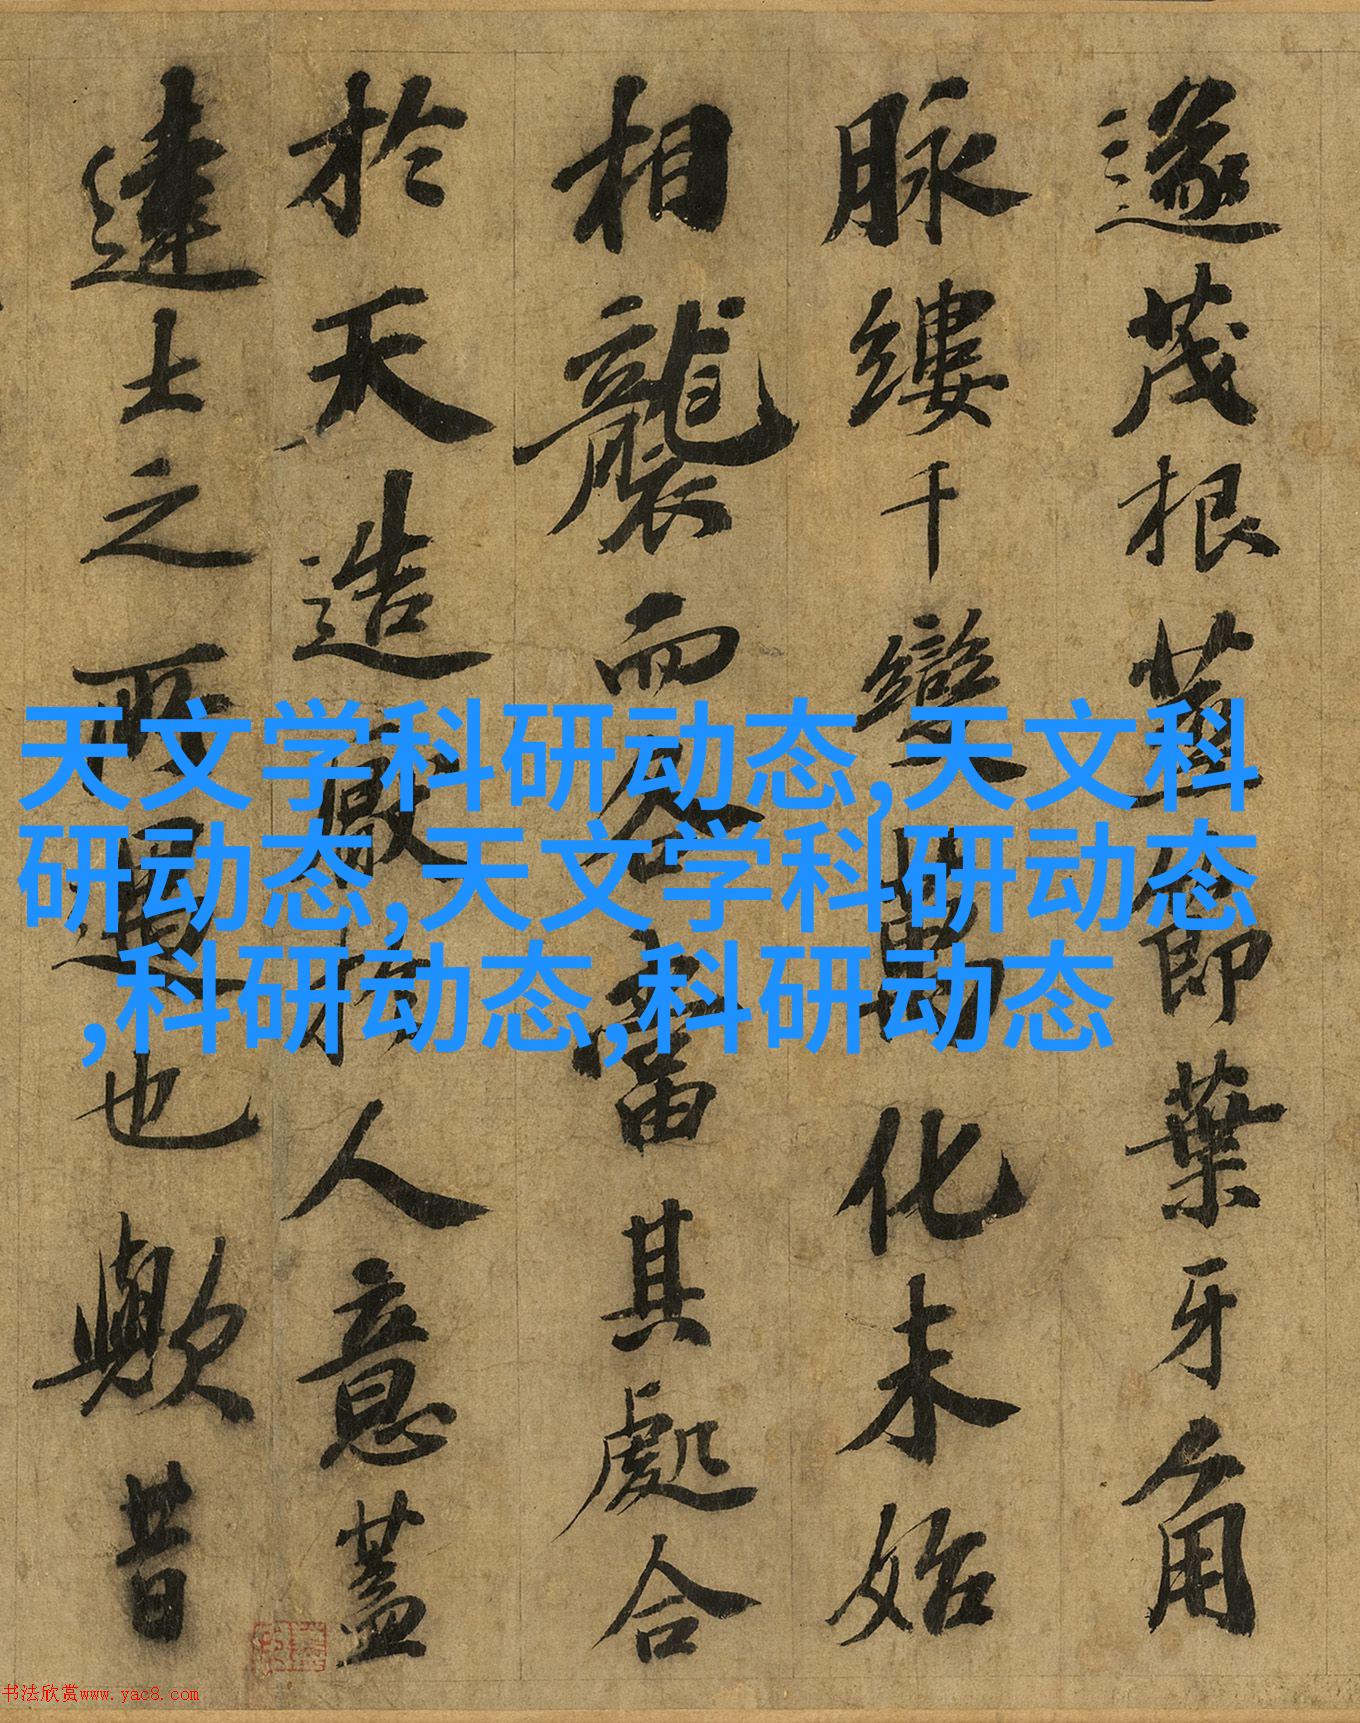 遂茂根荄節葉牙角
脉縷千變萬化未始
相襲而各當其處合
於天造厭於人意蓋
達士之所寓也歟昔
天文学科研动态,天文科
研动态,天文学科研动态
,科研动态,科研动态
书法欣赏www.yac8.com